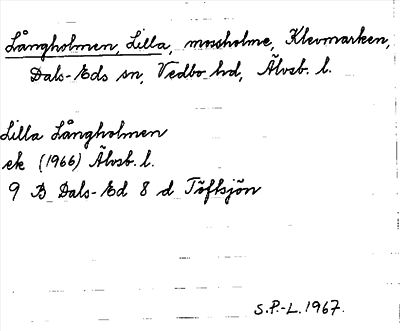 Långholmen, Lilla, mossholme, Klevmarken,
Dals-Eds sn, Vedbo hd, Älvsb. l.
Lilla Långholmen
ek (1966) Älvsb. l.
9 B Dals-Ed 8 d Töftsjön
S.P.-L. 1967.